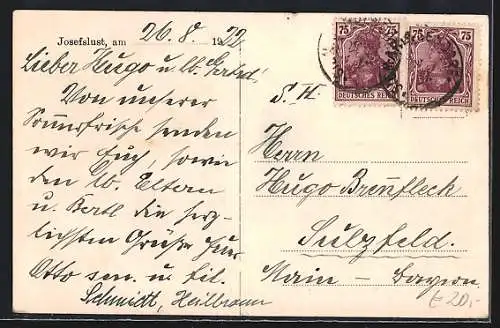 Josefslust, am 26.8. 1922
Lieber Hugo u. lb.
Von unserer
Sommerfrische senden
wir Euch, sowie
den lb. Eltern
u. Bertl die herz-
lichsten Grüße Eure
Otto sen. u. Lil.
Schmidt, Heilbronn
75 75
DEUTSCHES REICH
75 75
DEUTSCHES REICH
S. H.
Herrn
Hugo Brennfleck
Sulzfeld.
Main – Bayern.
€ 20,-